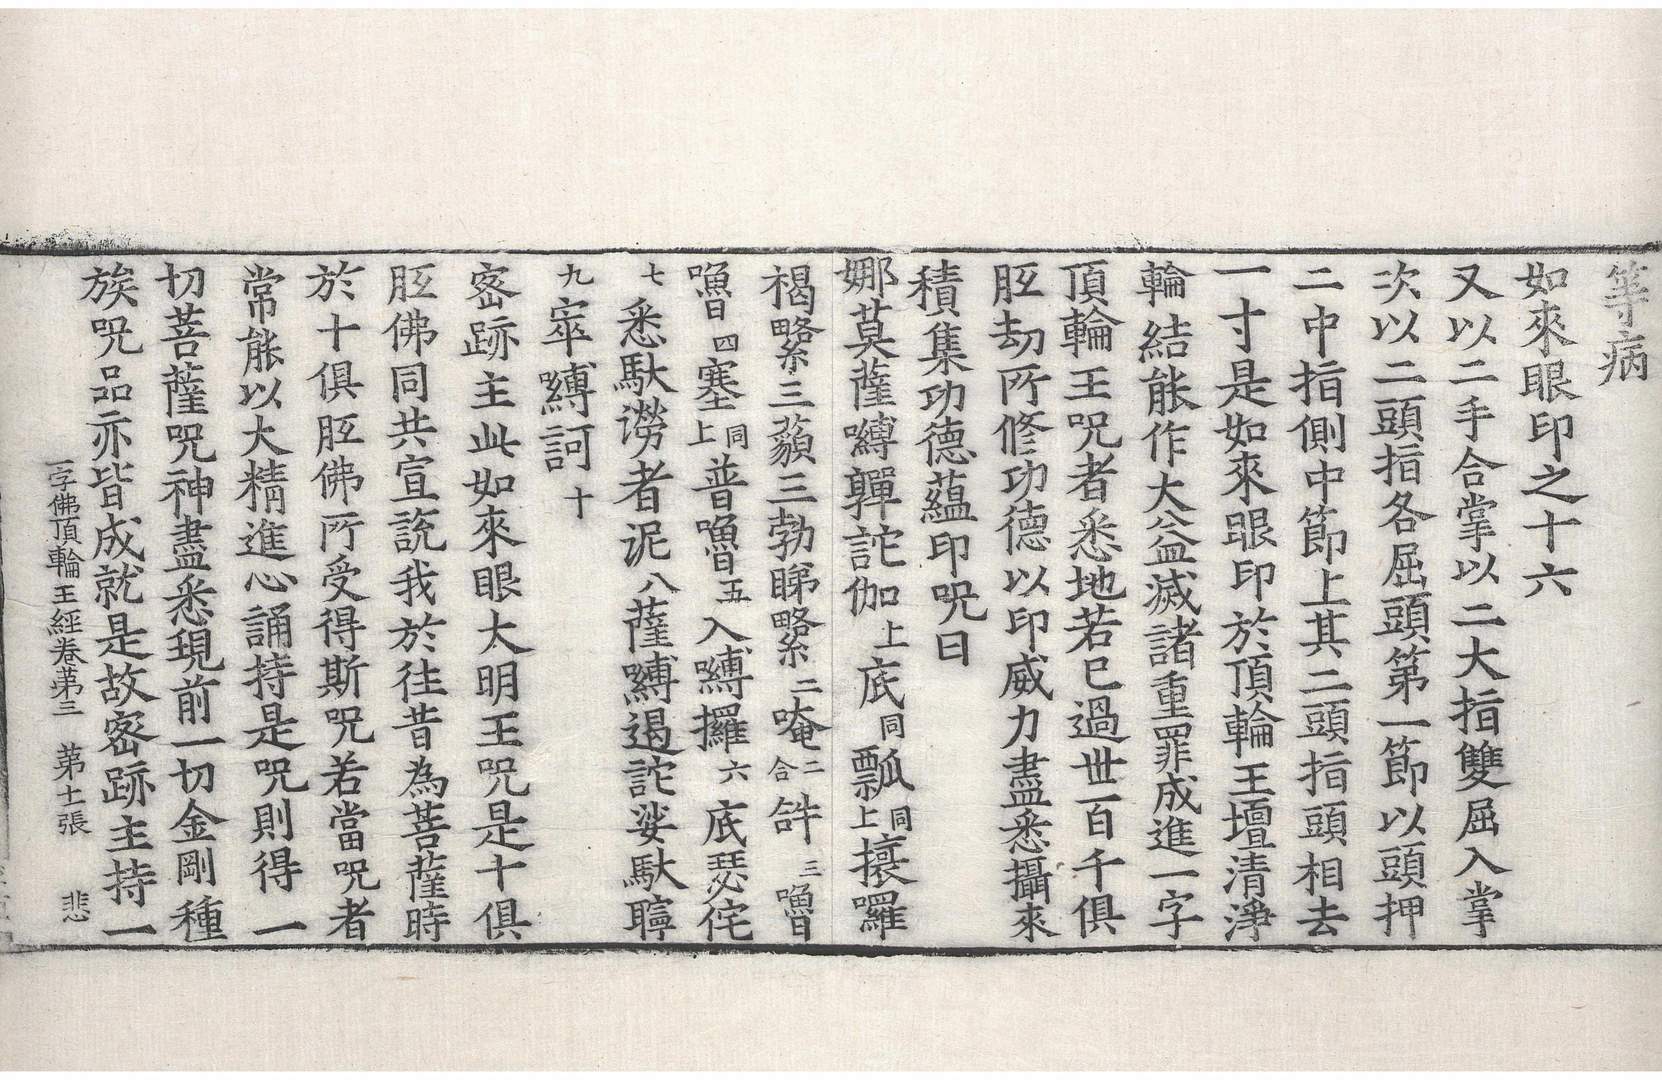 等病
如來眼印之十六
又以二手合掌以二大指雙屈入掌
次以二頭指各屈頭第一節以頭押
二中指側中節上其二頭指頭相去
一寸是如來眼印於頂輪王壇清淨
輪結能作大益滅諸重罪成進一字
頂輪王呪者悉地若已過世百千俱
胝劫所修功德以印威力盡悉攝來
積集功德蘊印呪曰
娜莫薩嚩䩭詑伽上底同瓢上同𢹂囉
褐略系三藐三勃睇略系二唵二合𤙖三嚕
嚕四塞上同普嚕五入嚩攞六底瑟侘
七悉馱澇者泥八薩嚩遏詑娑馱聹
九窣嚩訶十
密跡主此如來眼大明王呪是十俱
胝佛同共宣說我於往昔為菩薩時
於十俱胝佛所受得斯呪若當呪者
常能以大精進心誦持是呪則得一
切菩薩呪神盡悉現前一切金剛種
族呪品亦皆成就是故密跡主持一
一字佛頂輪王經卷苐三　苐十一張　悲